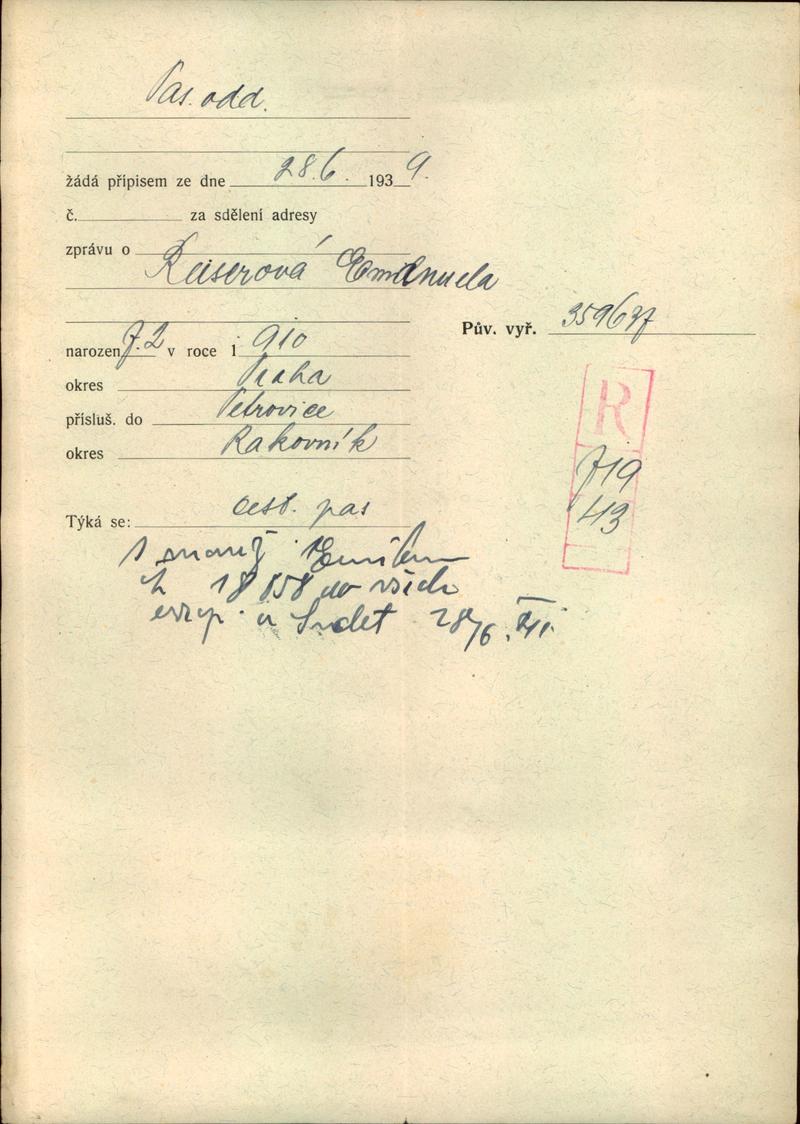 Pas. odd.
žádá přípisem ze dne 28.6. 1939.
č. za sdělení adresy
zprávu o
Reiserová Emanuela
Pův. vyř. 359637
narozen 7.2 v roce 1910
okres Praha
přísluš. do Petrovice
okres Rakovník
R
719
43
Týká se: cest. pas
s manž. Emilem
18858 do všech
evrop. a Sudet 28/6.